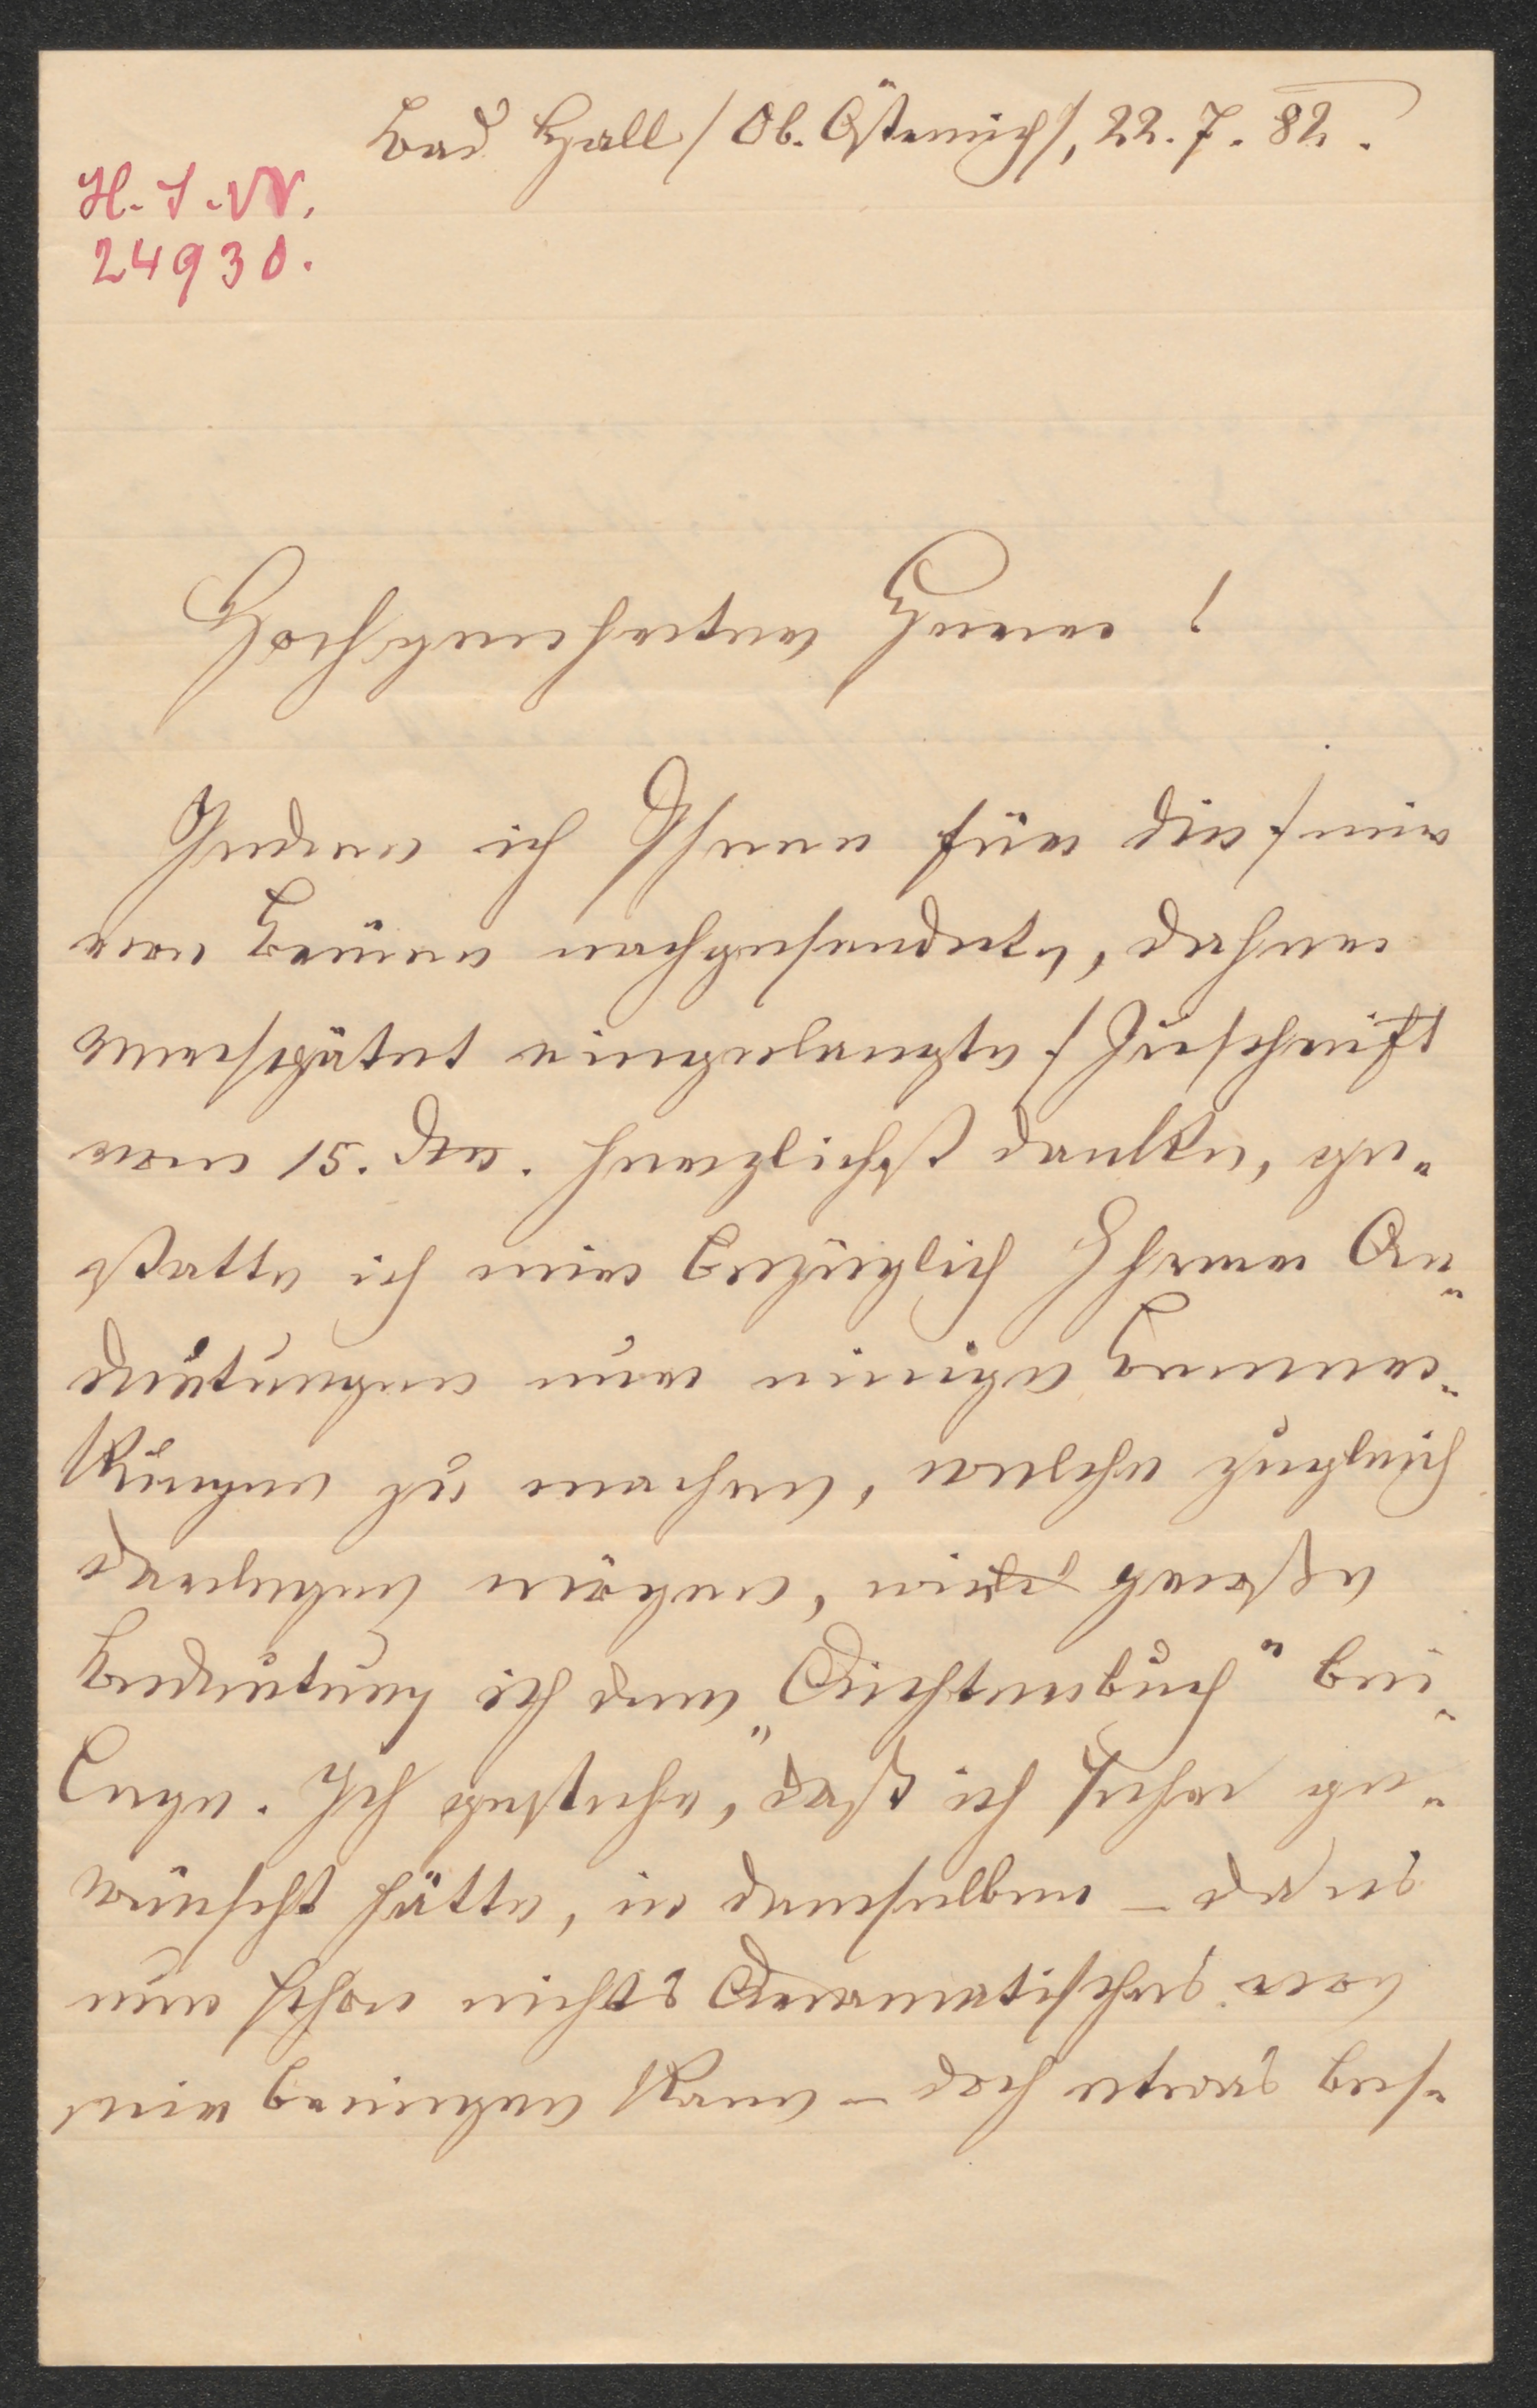 Bad Hall /Ob. Östereich/, 22. 7. 82.
H. I. N.
24930.
Hochgeehrter Herr!
Indem ich Ihnen für die /mir
von Brünn nachgesendete, daher
verspätet eingelangte/ Zuschrift
vom 15. des. herzlichst danke, ge-
statte ich mir bezüglich Ihrer An-
deutungen nur einige Bemer-
kungen zu machen, welche zugleich
darlegen mögen, wie große
Bedeutung ich dem „Dichterbuch" bei-
lege. Ich gestehe, daß ich sehr ge-
wünscht hätte, in demselben – da es
nun schon nichts Dramatisches von
mir bringen kann – doch etwas Bes-